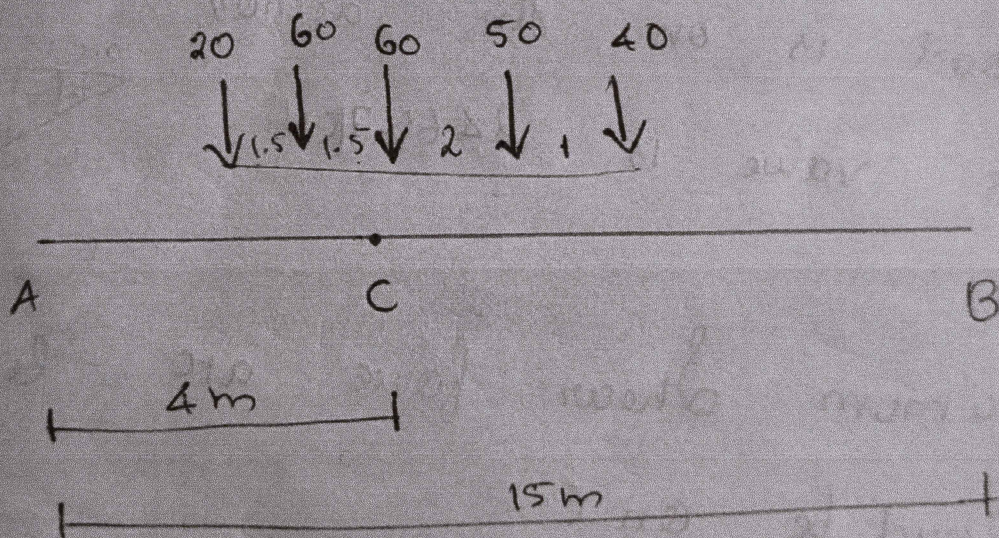 20 60 60 50 40
1.5 1.5 2 1
A C B
4 m
15 m